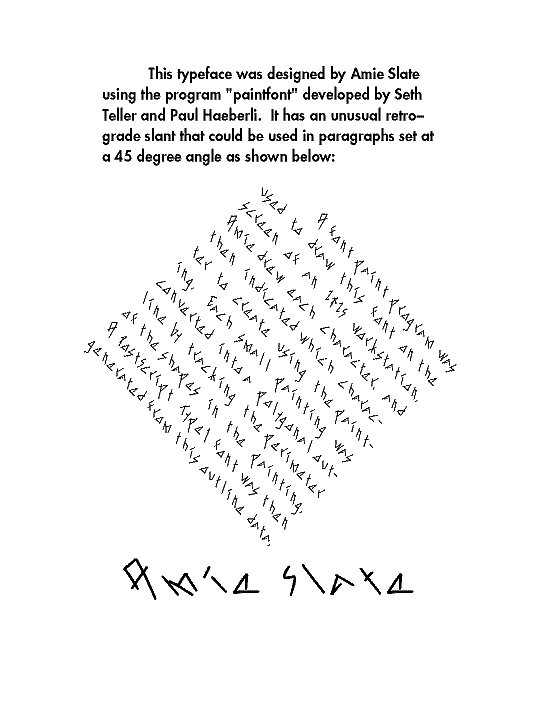 This typeface was designed by Amie Slate
using the program "paintfont" developed by Seth
Teller and Paul Haeberli. It has an unusual retro-
grade slant that could be used in paragraphs set at
a 45 degree angle as shown below:
A font paint program was
used to draw this font on the
screen of an IRIS workstation.
Amie drew each character, and
then indicated which charac-
ter to create using the paint-
ing. Each small painting was
converted into a polygonal out-
line by tracking the perimeter
of the shapes in the painting.
A Postscript type1 font was then
generated from this outline data.
Amie Slate